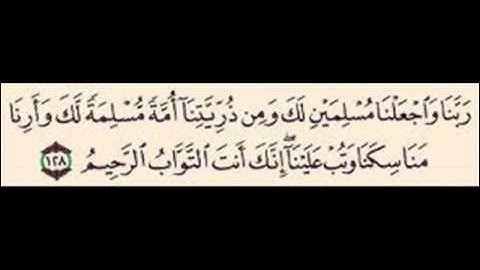 رَبَّنَا وَٱجْعَلْنَا مُسْلِمَيْنِ لَكَ وَمِن ذُرِّيَّتِنَآ أُمَّةً مُّسْلِمَةً لَّكَ وَأَرِنَا
مَنَاسِكَنَا وَتُبْ عَلَيْنَآ ۖ إِنَّكَ أَنتَ ٱلتَّوَّابُ ٱلرَّحِيمُ ١٢٨